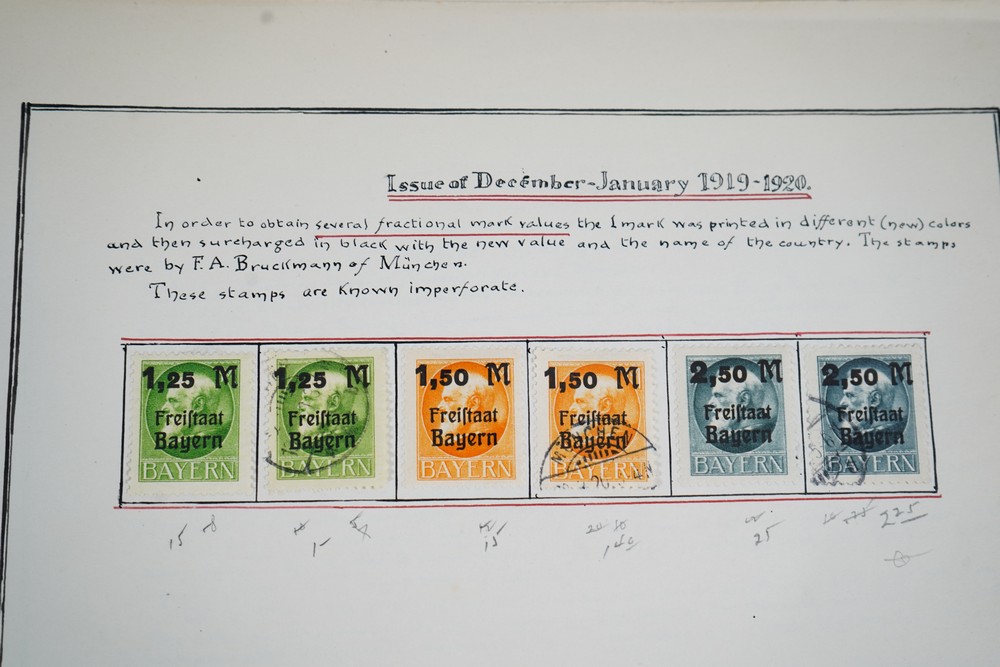 Issue of December-January 1919-1920.
In order to obtain several fractional mark values the 1 mark was printed in different (new) colors
and then surcharged in black with the new value and the name of the country. The stamps
were by F.A. Bruckmann of München.
These stamps are known imperforate.
1,25 M 1,25 M 1,50 M 1,50 M 2,50 M 2,50 M
Freiſtaat Freiſtaat Freiſtaat Freiſtaat Freiſtaat Freiſtaat
Bayern Bayern Bayern Bayern Bayern Bayern
BAYERN BAYERN BAYERN BAYERN BAYERN BAYERN
15 1- 15 140 25 225